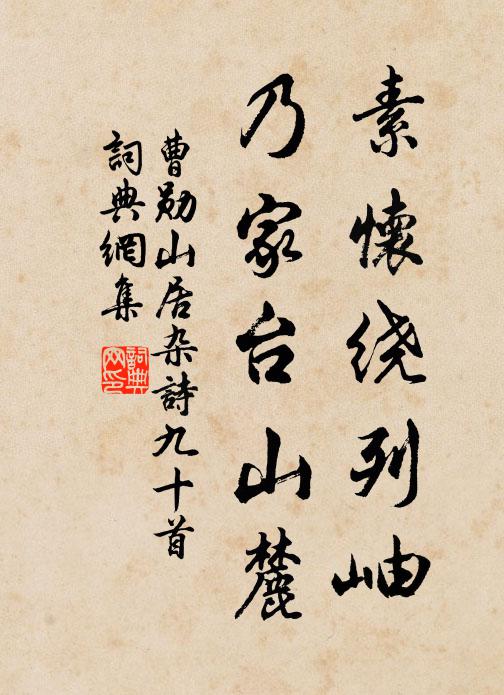 素懷绕列岫
乃家台山麓
曹勛山居杂詩九十首
詞典網集
詞典網印